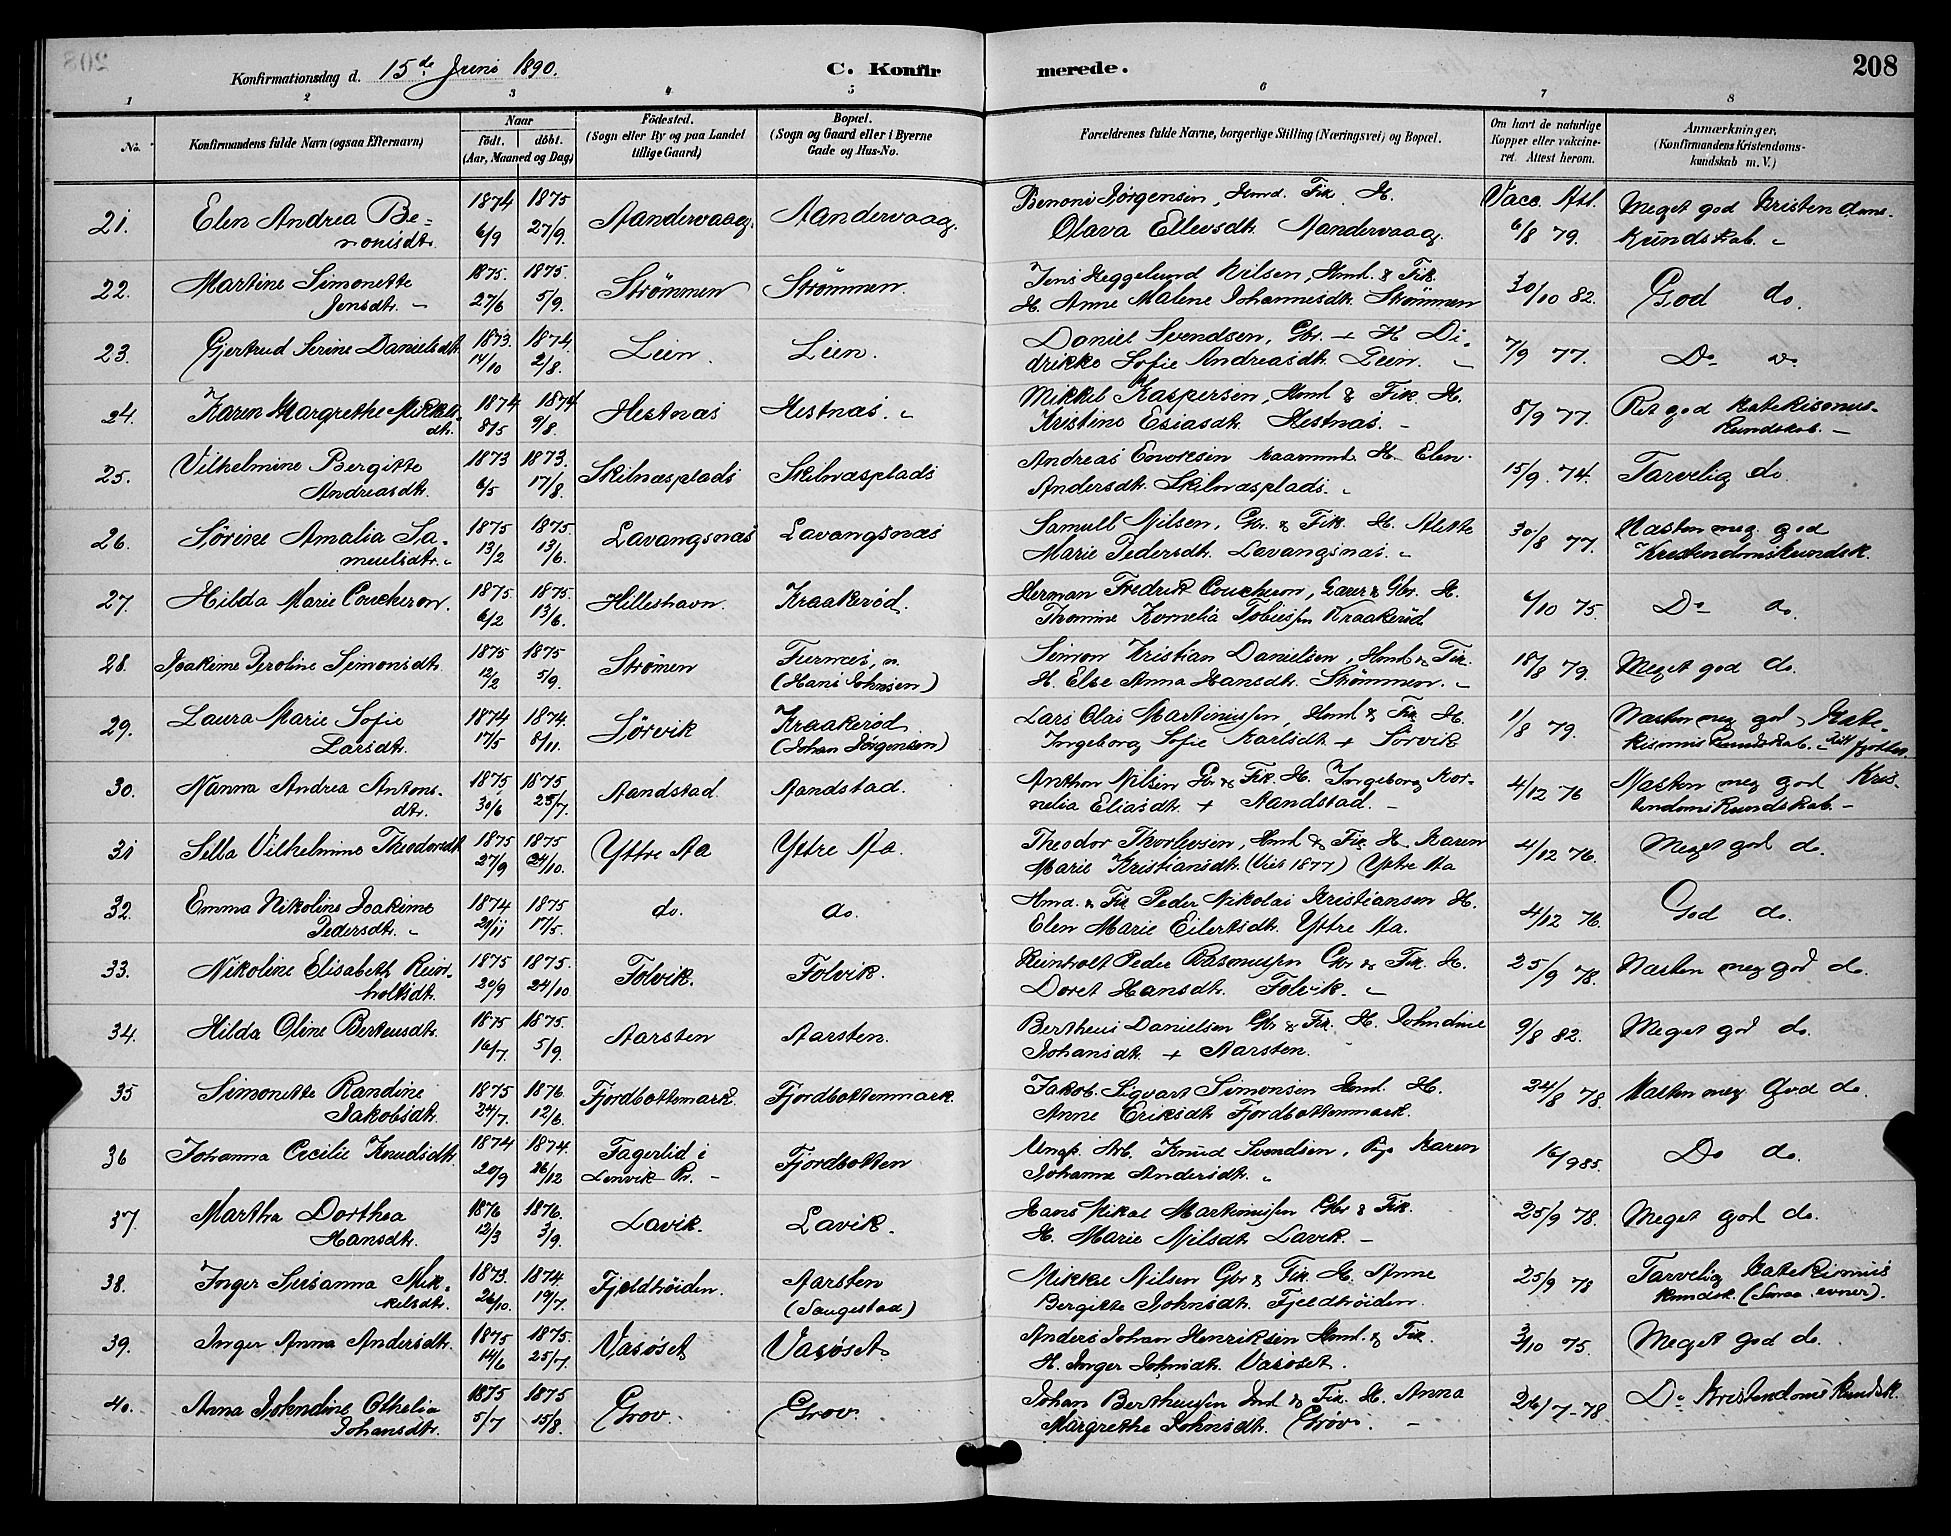 Konfirmationsdag d. 15de Juni 1890.
C. Konfir merede.
208
1 2 3 4 5 6 7 8
No.
Konfirmandens fulde Navn (ogsaa Efternavn)
Naar
födt. döbt.
(Aar, Maaned og Dag)
Födested.
(Sogn eller By og paa Landet
tillige Gaard)
Bopæl.
(Sogn og Gaard eller i Byerne
Gade og Hus-No.
Forældrenes fulde Navne, borgerlige Stilling (Næringsvei) og Bopæl.
Om havt de naturlige
Kopper eller vakcine-
ret. Attest herom.
Anmærkninger,
(Konfirmandens Kristendoms-
kundskab m. V.)
21. Elen Andrea Be- 1874 1875 Aandervaag. Aandervaag. Benoni Jörgensen, Hmd. Fik. H. Vacc. Att. Meget god Kristendoms-
nonisdtr. 6/9 27/9. Olava Ellevsdtr. Aandervaag. 6/8 79. kundskab.
22. Martine Simonette 1875. 1875. Strömmen Strömmen. Jens Heggelund Nilsen, Hmd. & Fik. 30/10 82. God do.
Jensdtr. 27/6 5/9. H. Anne Malene Johannesdtr. Strömmen
23. Gjertrud Serine Danielsdtr. 1873. 1874. Leen. Leen. Daniel Svendsen, Gbr. + H. Di- 7/9 77. Do do
14/10 2/8. drikke Sofie Andreasdtr. Leen.
24. Karen Margrethe Mikkels- 1874 1874 Hestnæs Hestnæs. Mikkel Kaspersen, Hmd & Fik. H. 8/9 77. Ret god Katekismus-
dtr. 8/5 9/8. Kristine Esiasdtr. Hestnæs. kundskab.
25. Vilhelmine Bergitte 1873 1873. Skilnæsplads Skilnæsplads Andreas Enoksen H. Elen 15/9 74. Tarvelig do.
Andreasdtr. 6/5 17/8. Andersdtr. Skilnæsplads.
26. Sörine Amalia Sa- 1875 1875 Lavangsnæs Lavangsnæs Samuel Nilsen, Gbr. & Fik. H. Alette 30/8 77. Næsten meg. god
muelsdtr. 13/2 13/6. Marie Pedersdtr. Lavangsnæs. Kristendomskundsk.
27. Hilda Marie Coucheron. 1875. 1875. Hilleshavn. Kraakeröd. Herman Fredrik Coucheron, & Gbr. H. 6/10 75. Do do
6/2 13/6. Thomine Kornelia Tobiesen Kraakeröd
28. Joakime Peroline Simonsdtr. 1875 1875 Strömen Furnes, Simon Kristian Danielsen, Hmd & Fik. 18/8 79. Meget god do.
12/2 5/9. (Hans Johnsen) H. Else Anna Hansdtr. Strömmen.
29. Laura Marie Sofie 1874 1874. Sörvik Kraakeröd Lars Olai Martinussen, Hmd & Fik H. 1/8 79. Næsten meg god Kate-
Larsdtr. 17/5 8/11. (Johan Jörgensen) Ingeborg Sofie Karlsdtr + Sörvik kismuskundskab.
30. Nanna Andrea Antons- 1875 1875 Aandstad. Aandstad. Anthon Nilsen Gbr & Fik. H. Ingeborg Kor- 4/12 76 Næsten meg god Kris-
dtr. 30/6 25/7. nelia Eliasdtr + Aandstad. tendomskundskab.
31 Sella Vilhelmine Theodorsdtr 1875 1875 Yttre Aa Yttre Aa. Theodor Thorbersen, Hmd & Fik H. Karen 4/12 76. Meget god do.
27/9 24/10. Marie Kristiansdtr. (Viet 1877) Yttre Aa
32. Emma Nikoline Joakime 1874 1875 do. do. Hmd. & Fik Peder Nikolai Kristiansen H. 4/12 76. God do.
Pedersdtr. 21/11 17/5. Elen Marie Eilertsdtr. Yttre Aa.
33. Nikoline Elisabeth Rein- 1875 1875. Folvik. Folvik. Reinholt Peder Rasmussen Gbr & Fik. H. 25/9 78. Næsten meg god do.
holtsdtr. 20/9 24/10 Doret Hansdtr. Folvik.
34. Hilda Oline Bertheusdtr. 1875 1875. Aarsten Aarsten. Bertheus Danielsen Gbr & Fik. H. Johndine 9/8 82. Meget god do.
16/7. 5/9. Johansdtr. + Aarsten.
35 Simonette Randine 1875 1876 Fjordbottemark. Fjordbottenmark. Jakob Sigvart Simonsen Hmd. H. 24/8 78. Næsten meg God do
Jakobsdtr. 24/7. 12/6. Anne Eriksdtr Fjordbottenmark.
36 Johanna Cecilie Knudsdtr. 1874 1874. Fagerlid i Fjordbotten Ungk. Arb. Knud Svendsen, Pige Karen 16/9 85. Do do.
20/9 26/12 Lenvik Pr. Johanna Andersdtr.
37. Martha Dorthea 1876 1876. Lavik. Lavik. Hans Mikal Martinussen Gbr & Fik. 25/9 78. Meget god do.
Hansdtr. 12/3 3/9. H. Marie Nilsdtr Lavik.
38. Inger Susanna Mik- 1873. 1874 Fjeldhöiden. Aarsten Mikkel Nilsen Gbr & Fik. H. Anne 25/9 78 Tarvelig Katekismus
kelsdtr. 26/10. 19/7. (Saugestad) Bergitte Johnsdtr. Fjeldhöiden. kundsk. (Smaa evner).
39. Inger Anna Andersdtr. 1875 1875. Vasöset Vasöset Anders Johan Henriksen Hmd. & Fik. 3/10 75. Meget god do.
14/6 25/7. H. Inger Johnsdtr. Vasöset.
40. Anna Johndine Othelia 1875 1875 Grov. Grov. Johan Bertheussen Ind & Fik. H. Anna 26/7-78 Do Kristendomskundsk.
Johansdtr. 5/7 15/8. Margrethe Johnsdtr. Gröv.